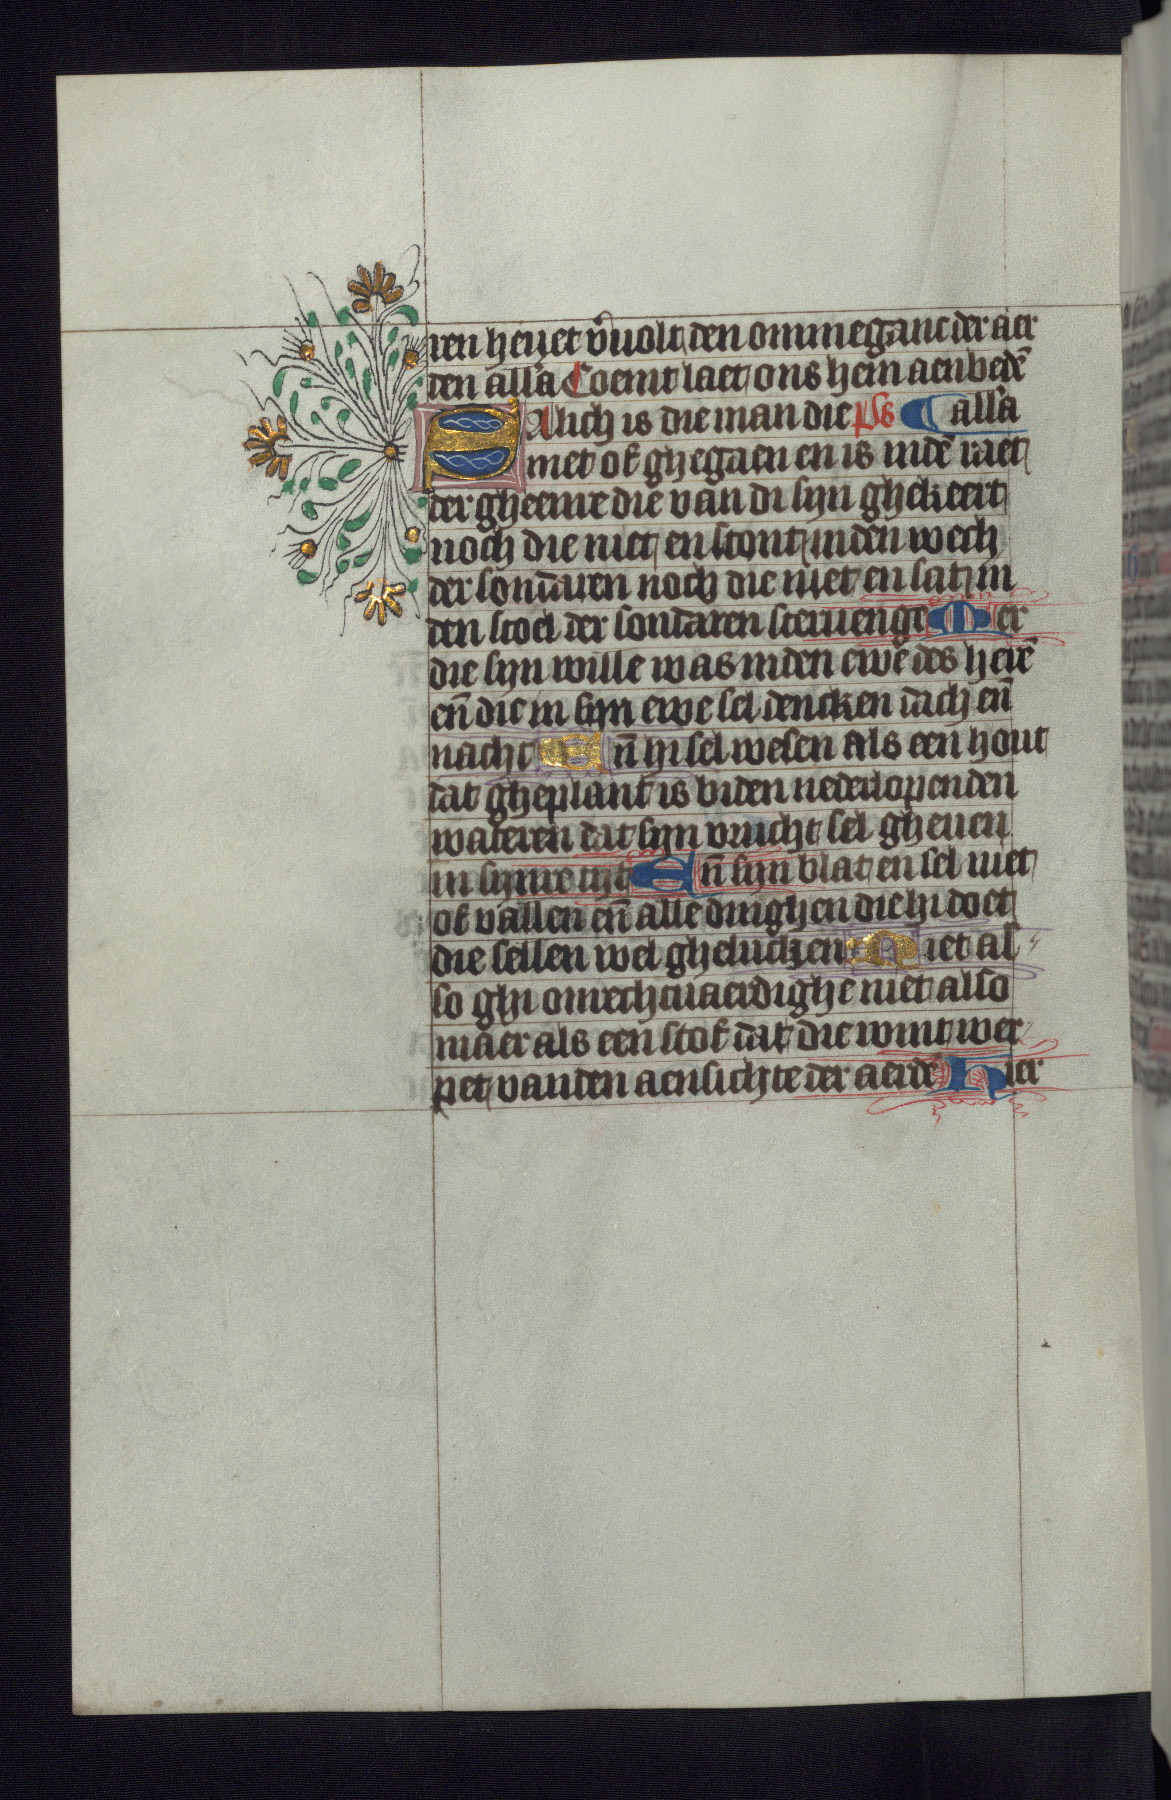 ren heuet v̄uolt den ommeganc der aer
den all'a Coemt laet ons hem aenbedē
Salich is die man die ps all'a
niet of ghegaen en is indē raet
der gheenre die van di sijn ghekeert
noch die niet en stont inden wech
der sondaren noch die niet en sat in
den stoel der sondaren steruenge Mer
die sijn wille was inden ewē des herē
eñ die in sijn ewe sel dencken dach eñ
nacht Eñ hi sel wesen als een hout
dat gheplant is biden nederlopenden
wateren dat sijn vrucht sel gheuen
in sijnre tijt Eñ sijn blat en sel niet
of vallen eñ alle dinghen die hi doet
die sellen wel ghelucken Niet al
so ghi onrechtuaerdighe niet also
maer als een stof dat die wint wer
pet vanden aensichte der aerdē Hier